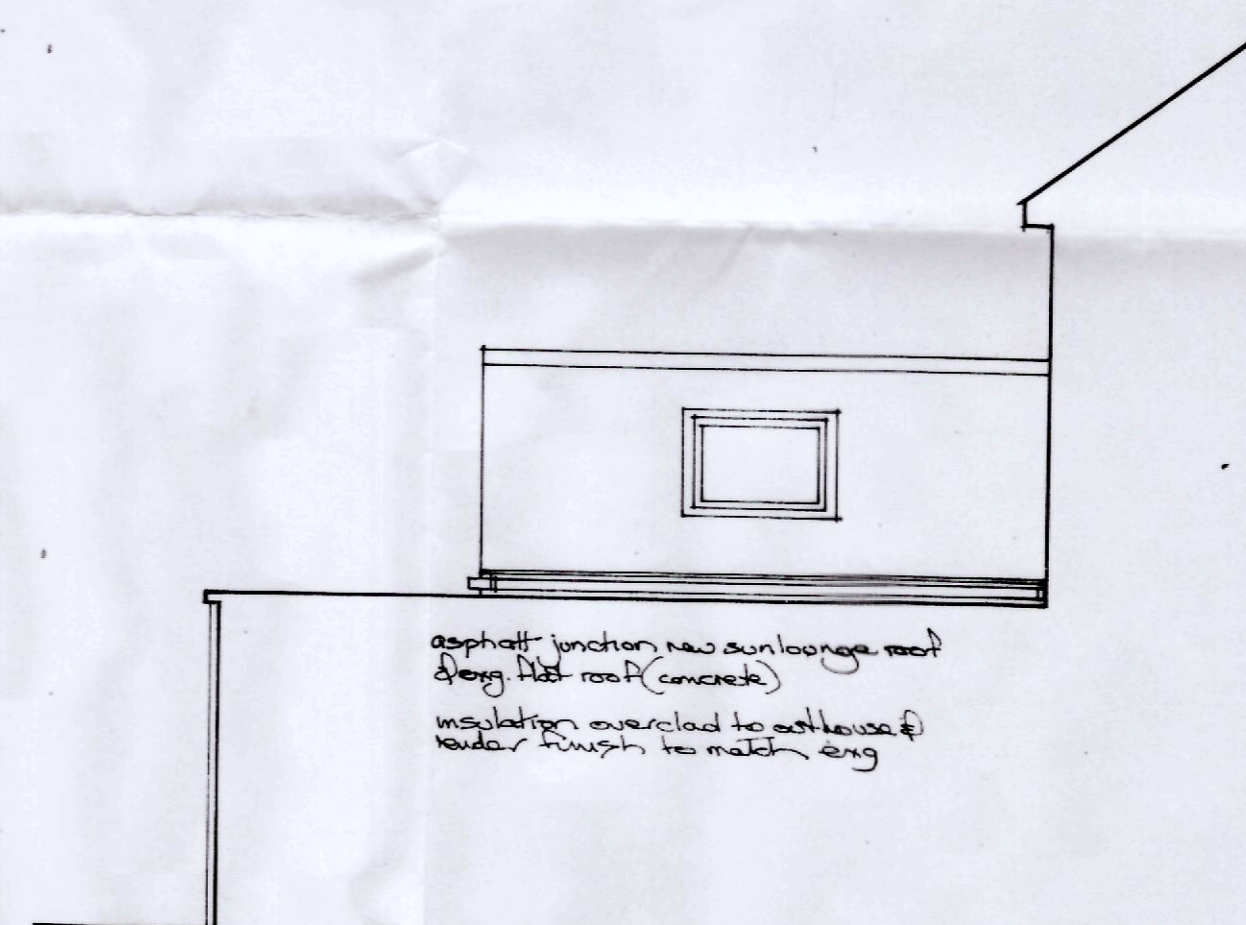 asphalt junction new sun lounge roof
& exg. flat roof (concrete)
insulation overclad to outhouse &
render finish to match exg